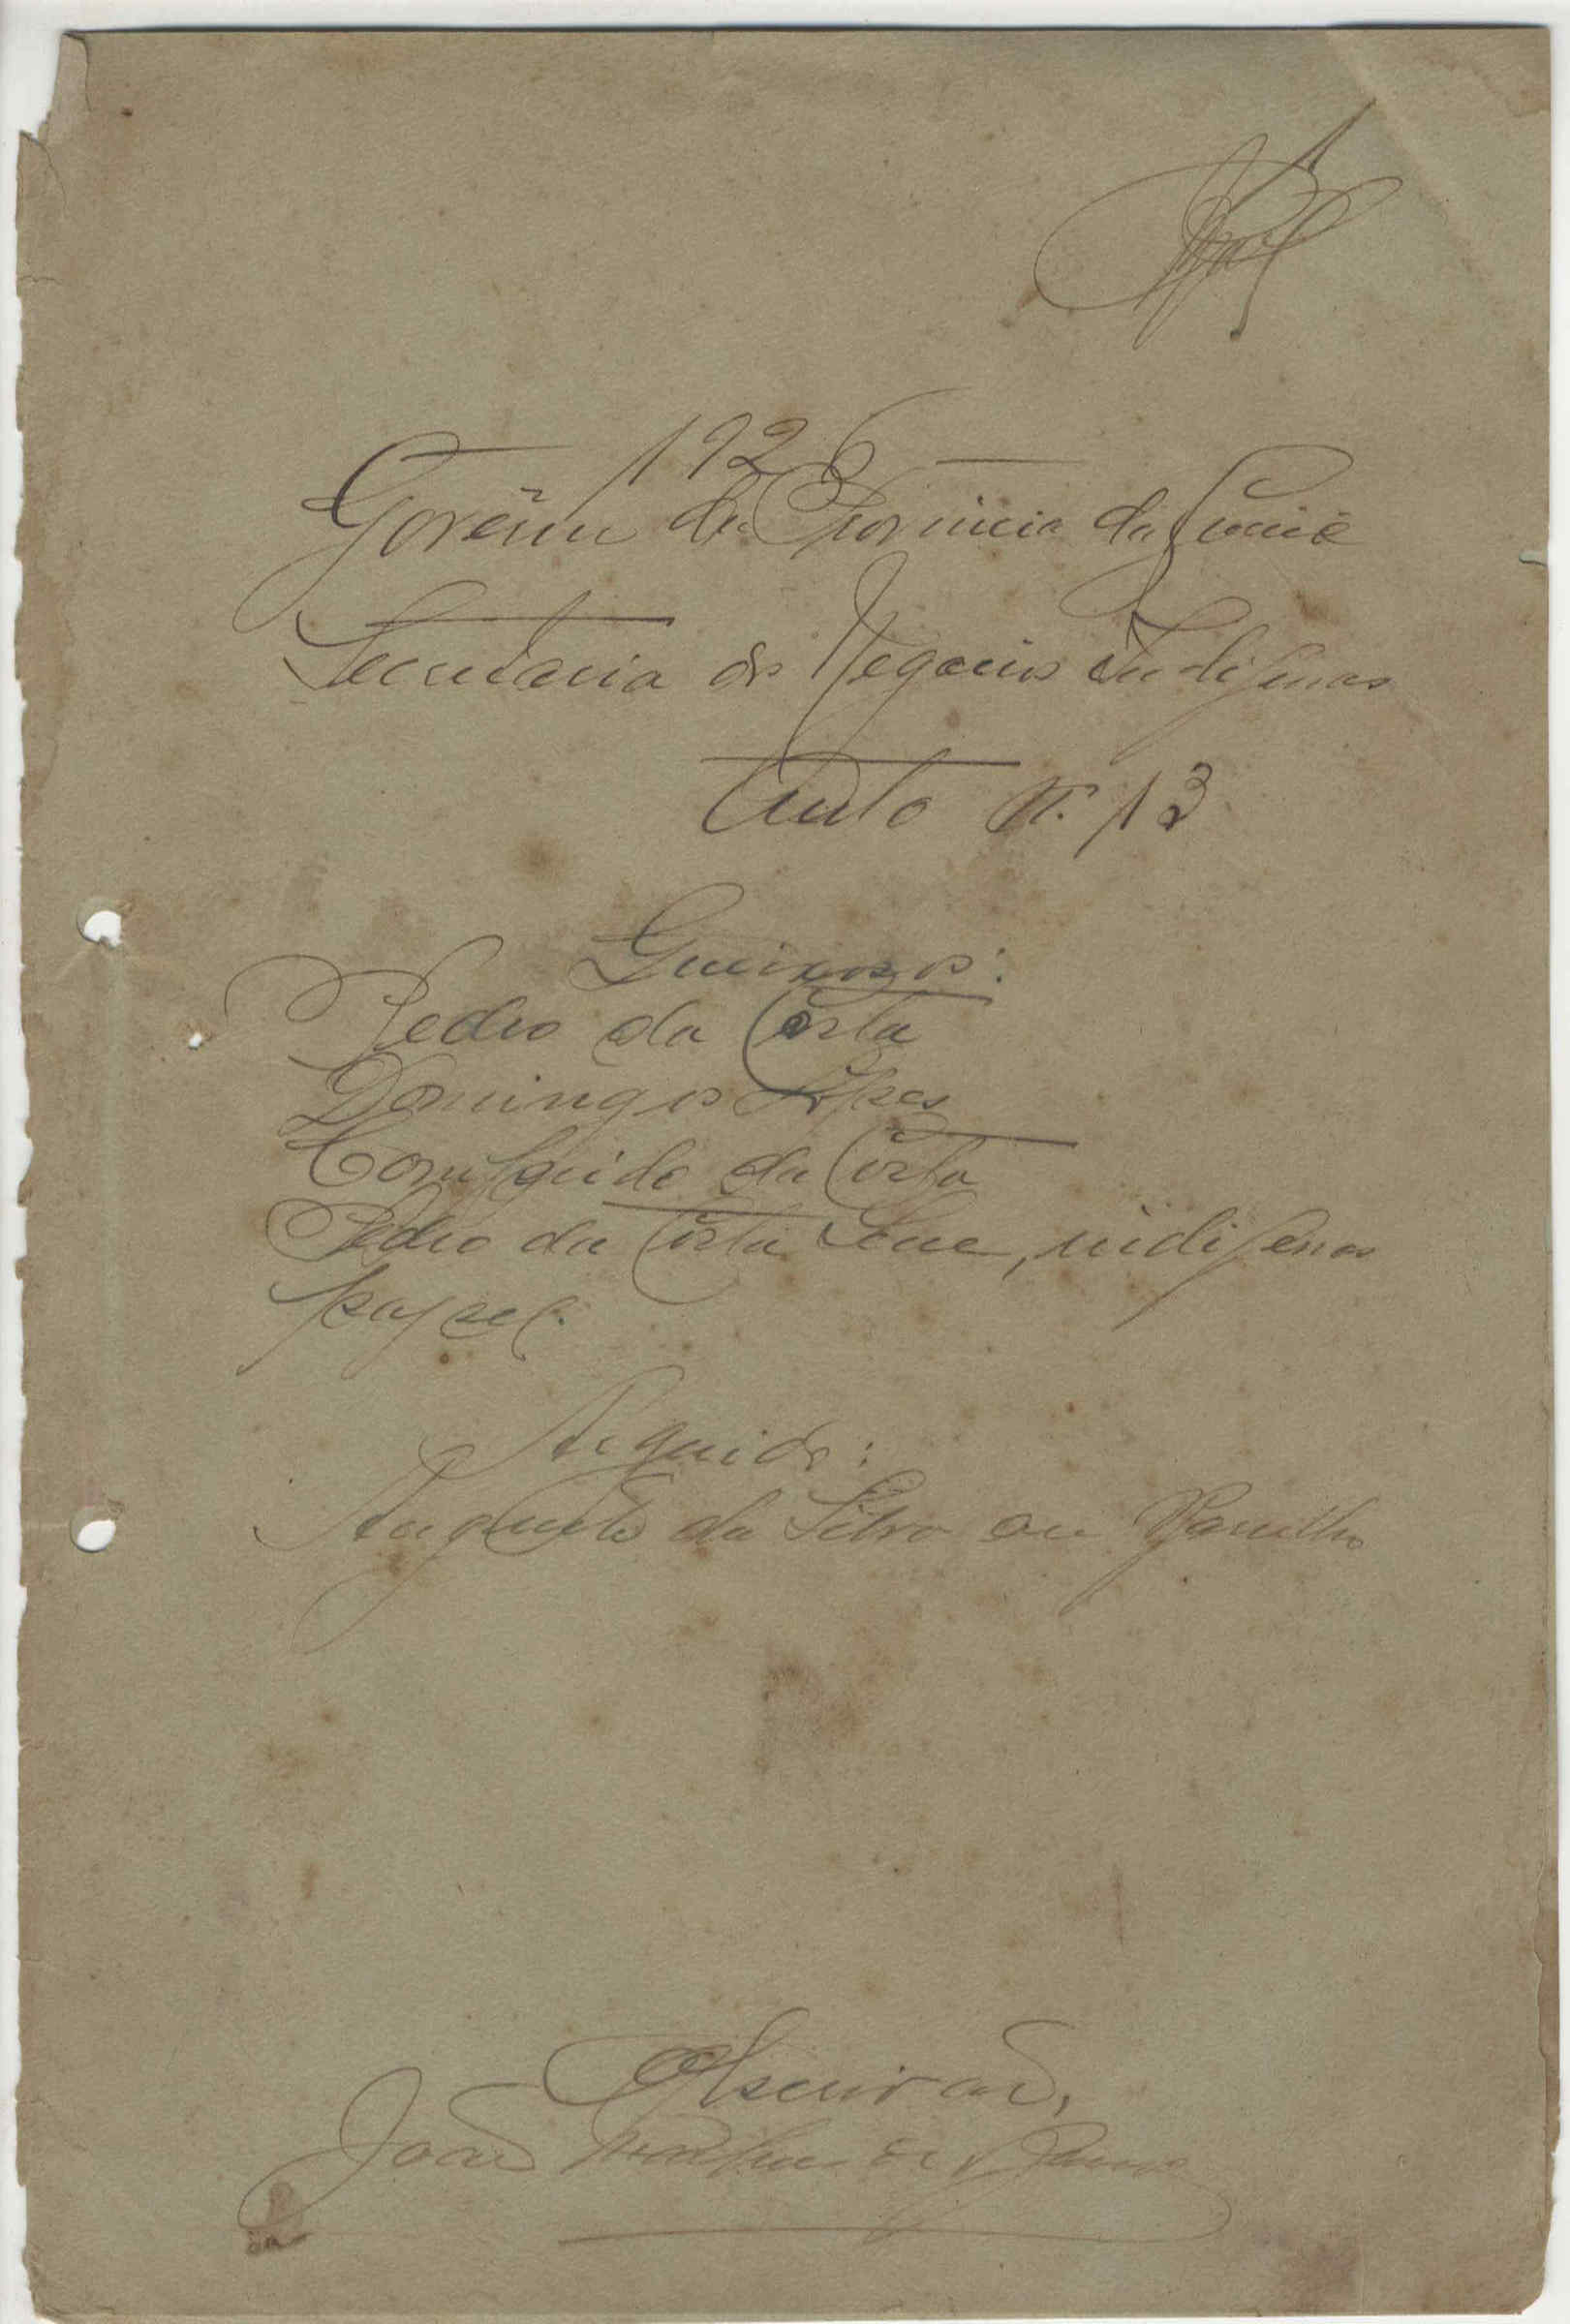 1926
Govêrno da Provincia da Guiné
Secretaria dos Negocios Indigenas
Auto n.º 13
Queixosos:
Pedro da Costa
Domingos Lopes
da Costa
Pedro da Costa Sene, indigenas
papel.
Arguido:
Augusto da Silva ou
O Escrivão,
João de